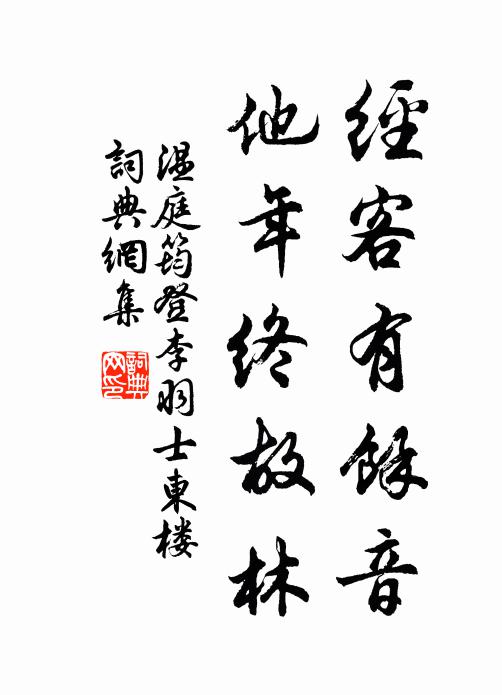 經客有餘音
他年終故林
温庭筠登李羽士東楼
詞典網集
詞典网印